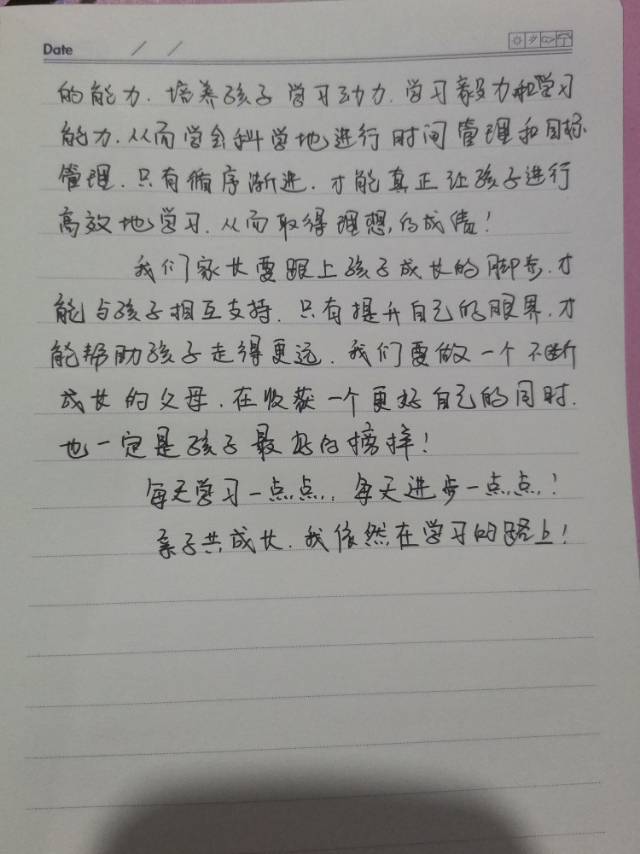 Date / /
的能力.培养孩子学习动力.学习毅力和学习
能力.从而学会科学地进行时间管理和目标
管理.只有循序渐进.才能真正让孩子进行
高效地学习.从而取得理想的成绩!
我们家长要跟上孩子成长的脚步.才
能与孩子相互支持.只有提升自己的眼界.才
能帮助孩子走得更远.我们要做一个不断
成长的父母.在收获一个更好自己的同时.
也一定是孩子最好的榜样!
每天学习一点点.每天进步一点点!
亲子共成长.我依然在学习的路上!